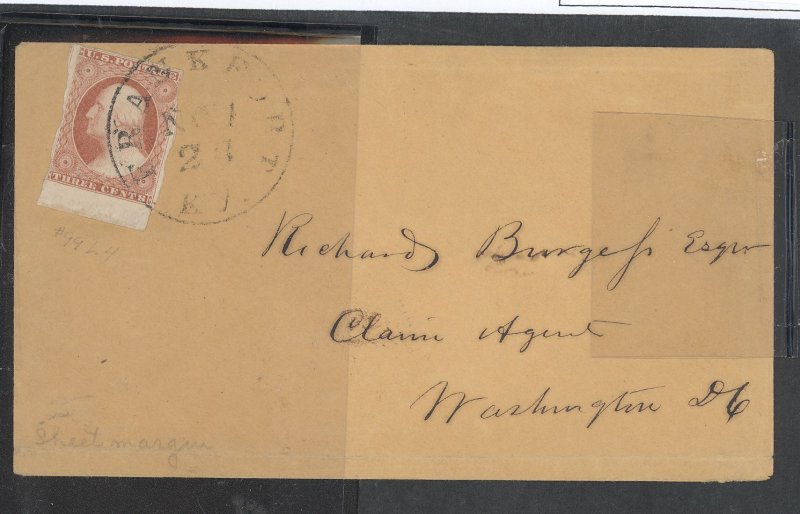 U.S. POSTAGE
THREE CENTS
FRANKFORT
KY.
#99L4
Richard Burgess Esqr
Claim Agent
Washington DC
Sheet margin